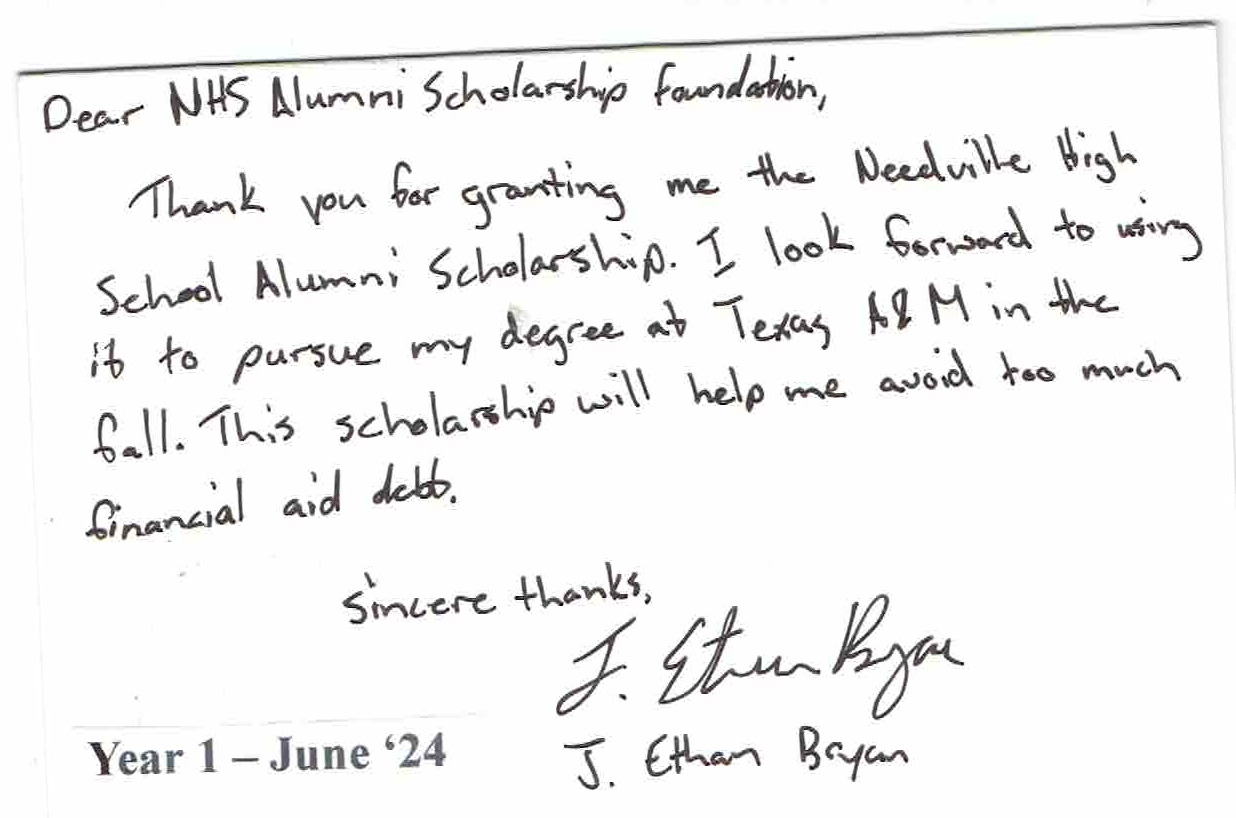 Dear NHS Alumni Scholarship Foundation,
Thank you for granting me the Needville High
School Alumni Scholarship. I look forward to using
it to pursue my degree at Texas A&M in the
fall. This scholarship will help me avoid too much
financial aid debt.
Sincere thanks,
J. Ethan Bryan
Year 1 – June ‘24
J. Ethan Bryan